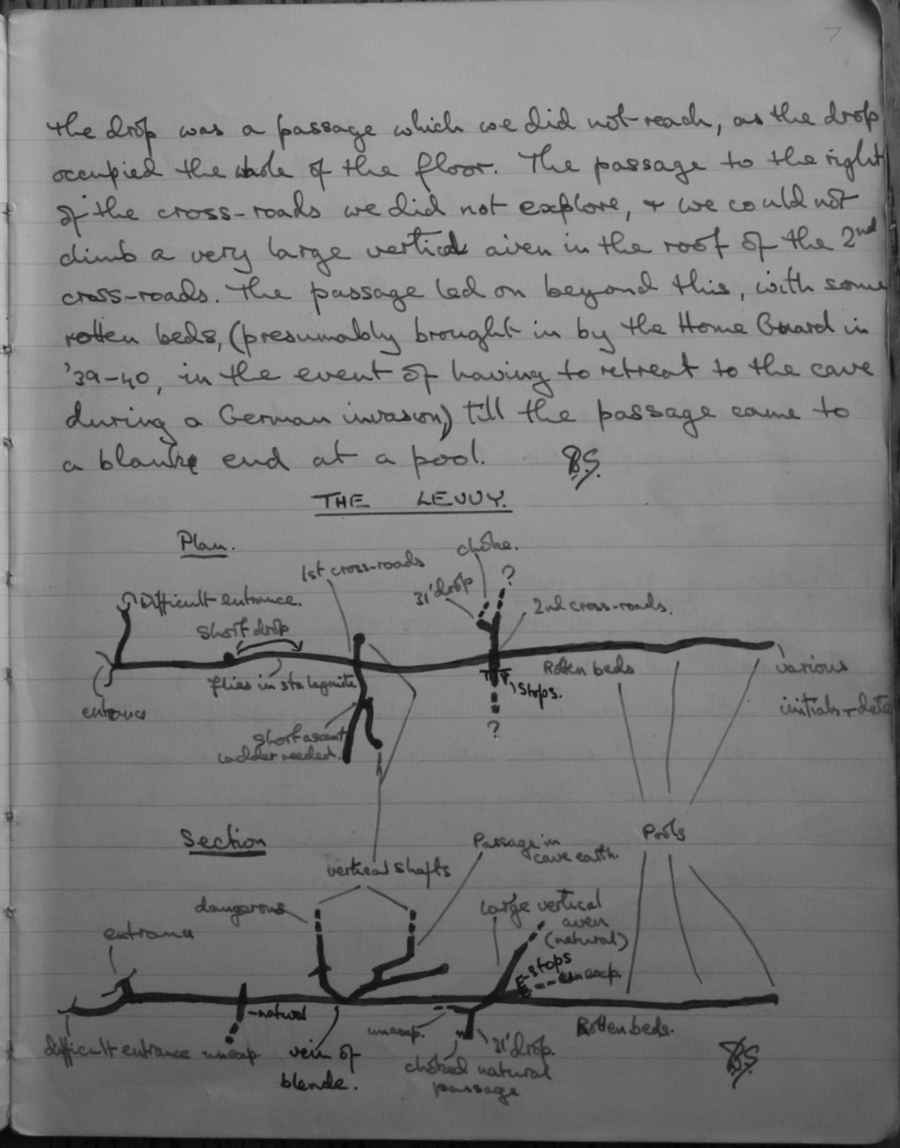 7
the drop was a passage which we did not reach, as the drop
occupied the whole of the floor. The passage to the right
of the cross-roads we did not explore, + we could not
climb a very large vertical aven in the roof of the 2nd
cross-roads. The passage led on beyond this, with some
rotten beds, (presumably brought in by the Home Guard in
'39-40, in the event of having to retreat to the cave
during a German invasion) till the passage came to
a blank end at a pool.
THE LEVVY.
Plan.
choke.
1st cross-roads
?
31' drop
Difficult entrance.
2nd cross-roads.
Short drop
Rotten beds
various
initials + date
flies in stalagmite
Stops.
entrance
?
Short ascent
ladder needed.
Pools
Section
Passage in
cave earth.
vertical shafts
dangerous
Large vertical
aven
(natural)
entrance
stops
unexp.
natural
unexp.
Rotten beds.
difficult entrance
unexp.
vein of
blende.
31' drop.
choked natural
passage